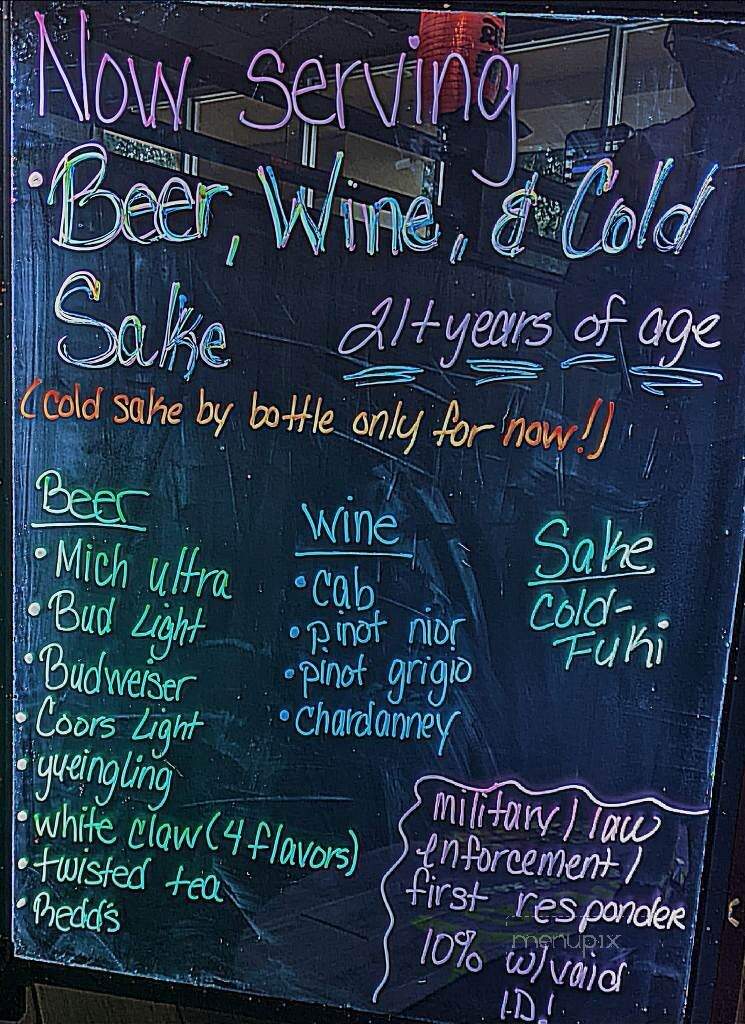 Now serving
• Beer, Wine, & Cold
Sake 21+ years of age
(cold sake by bottle only for now!)
Beer
• Mich ultra
• Bud Light
• Budweiser
• Coors Light
• yueingling
• white claw (4 flavors)
• twisted tea
• Redd's
wine
• cab
• pinot nior
• pinot grigio
• chardanney
Sake
cold-
Fuki
military / law
enforcement /
first responder
10% w/vaid
I.D!
menupix